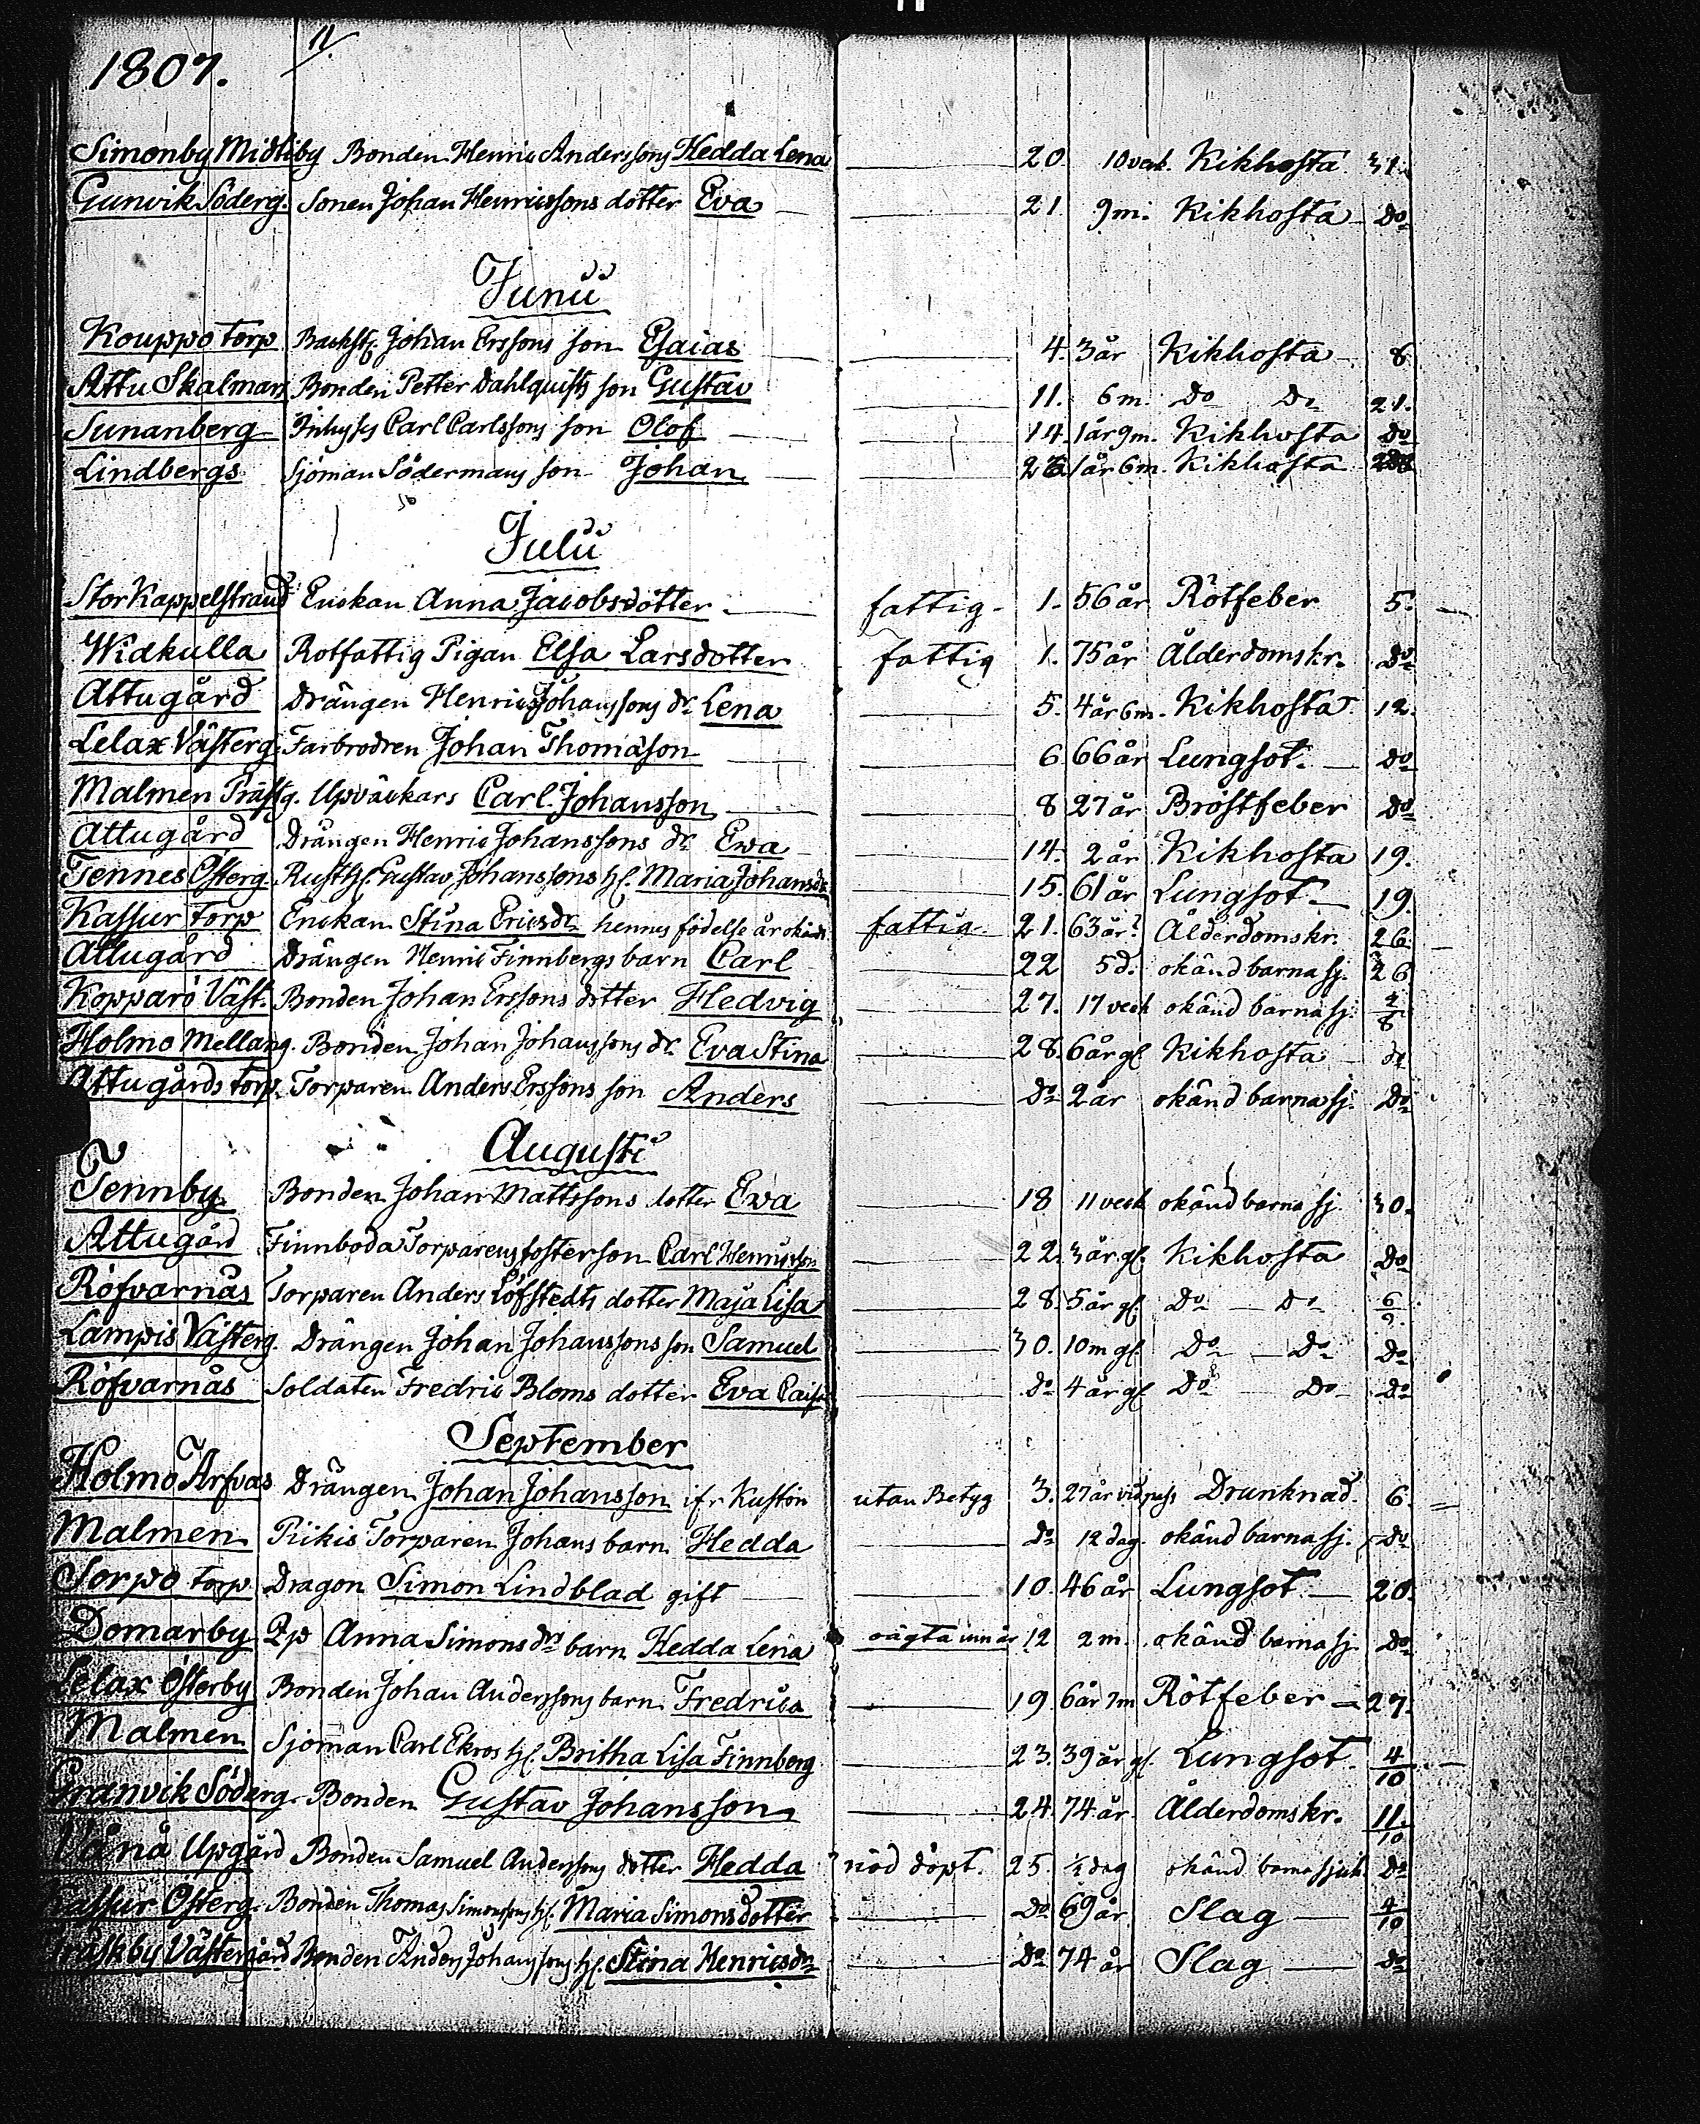 1807. 11
Simonby Midtiby Bonden Henric Anderssons Hedda Lena 20. 10 veck. Kikhosta 31.
Gunvik Söderg. Sonen Johan Henricssons dotter Eva 21 9 m. Kikhosta Do
Junii
Kouppo torp Backst. Johan Erssons son Esaias 4. 3 år Kikhosta 8
Attu Skalmars Bonden Petter Dahlquists son Gustav 11. 6 m. Do Do 21.
Sunanberg Inhyses Carl Carlssons son Olof 14. 1 år 9 m. Kikhosta Do
Lindbergs Sjöman Södermans son Johan 1 år 6 m. Kikhosta
Julii
Stor Kappelstrand Enckan Anna Jacobsdotter fattig 1. 56 år Rötfeber 5.
Widkulla Rotfattig Pigan Elsa Larsdotter fattig 1. 75 år Ålderdomskr. Do
Attugård Drängen Henric Johanssons dr. Lena 5. 4 år 6 m. Kikhosta 12.
Lelax Västerg. Farbrodren Johan Thomasson 6. 66 år Lungsot. Do
Malmen Prästg. Upväckars Carl Johansson 8 27 år Bröstfeber Do
Attugård Drängen Henric Johanssons dr. Ewa 14. 2 år Kikhosta 19.
Tennes Österg. Rusth. Gustav Johanssons h. Maria Johansdr 15. 61 år Lungsot 19.
Kassur torp Enckan Stina Ericsdr. hennes födelse år okändt fattig 21. 63 år? Ålderdomskr. 26.
Attugård Drängen Henric Finnbergs barn Carl 22 5 d. okänd barnasj. 26
Kopparö Väst. Bonden Johan Erssons dotter Hedvig 27. 17 veck okänd barnasj. 2/8
Holmo Mellang. Bonden Johan Johanssons dr. Eva Stina 28. 6 år gl. Kikhosta
Attugårds torp. Torparen Anders Erssons son Anders Do 2 år okänd barnasj. Do
Augusti
Tennby Bonden Johan Mattssons dotter Eva 18 11 veck okänd barnasj. 30.
Attugård Finnboda Torparens fosterson Carl Henricsson 22. 3 år gl. Kikhosta Do
Röfvarnäs Torparen Anders Löfstedts dotter Maja Lisa 28. 5 år gl. Do Do 6/9
Lampis Västerg. Drängen Johan Johanssons son Samuel 30. 10 m gl. Do Do Do
Röfvarnäs Soldaten Fredric Bloms dotter Eva Caisa Do 4 år gl. Do Do Do
September
Holmo Arfvas Drängen Johan Johansson ifr. Kustön utan Betyg 3. 27 år vid pass Drunknad. 6.
Malmen Piikis Torparen Johans barn Hedda Do 12 dag. okänd barnasj. Do
Sorpo torp Dragon Simon Lindblad gift 10. 46 år Lungsot 20.
Domarby Qp Anna Simonsdrs barn Hedda Lena oägta 12 2 m. okänd barnasj. Do
Lelax Österby Bonden Johan Anderssons barn Fredrica 19. 6 år 7 m Rötfeber 27.
Malmen Sjöman Carl Ekros h. Britha Lisa Finnberg 23. 39 år gl. Lungsot. 4/10
Granvik Söderg. Bonden Gustav Johansson 24. 74 år. Ålderdomskr. 11./10
Vånå Upgård Bonden Samuel Anderssons dotter Hedda nöd döpt. 25. ½ dag okänd barnasjuk. Do
Kassur Österg. Bonden Thomas Simonssons h. Maria Simonsdotter Do 69 år Slag 4/10
Träskby Västergård Bonden Anders Johanssons h. Stina Henricsdr Do 74 år Slag Do